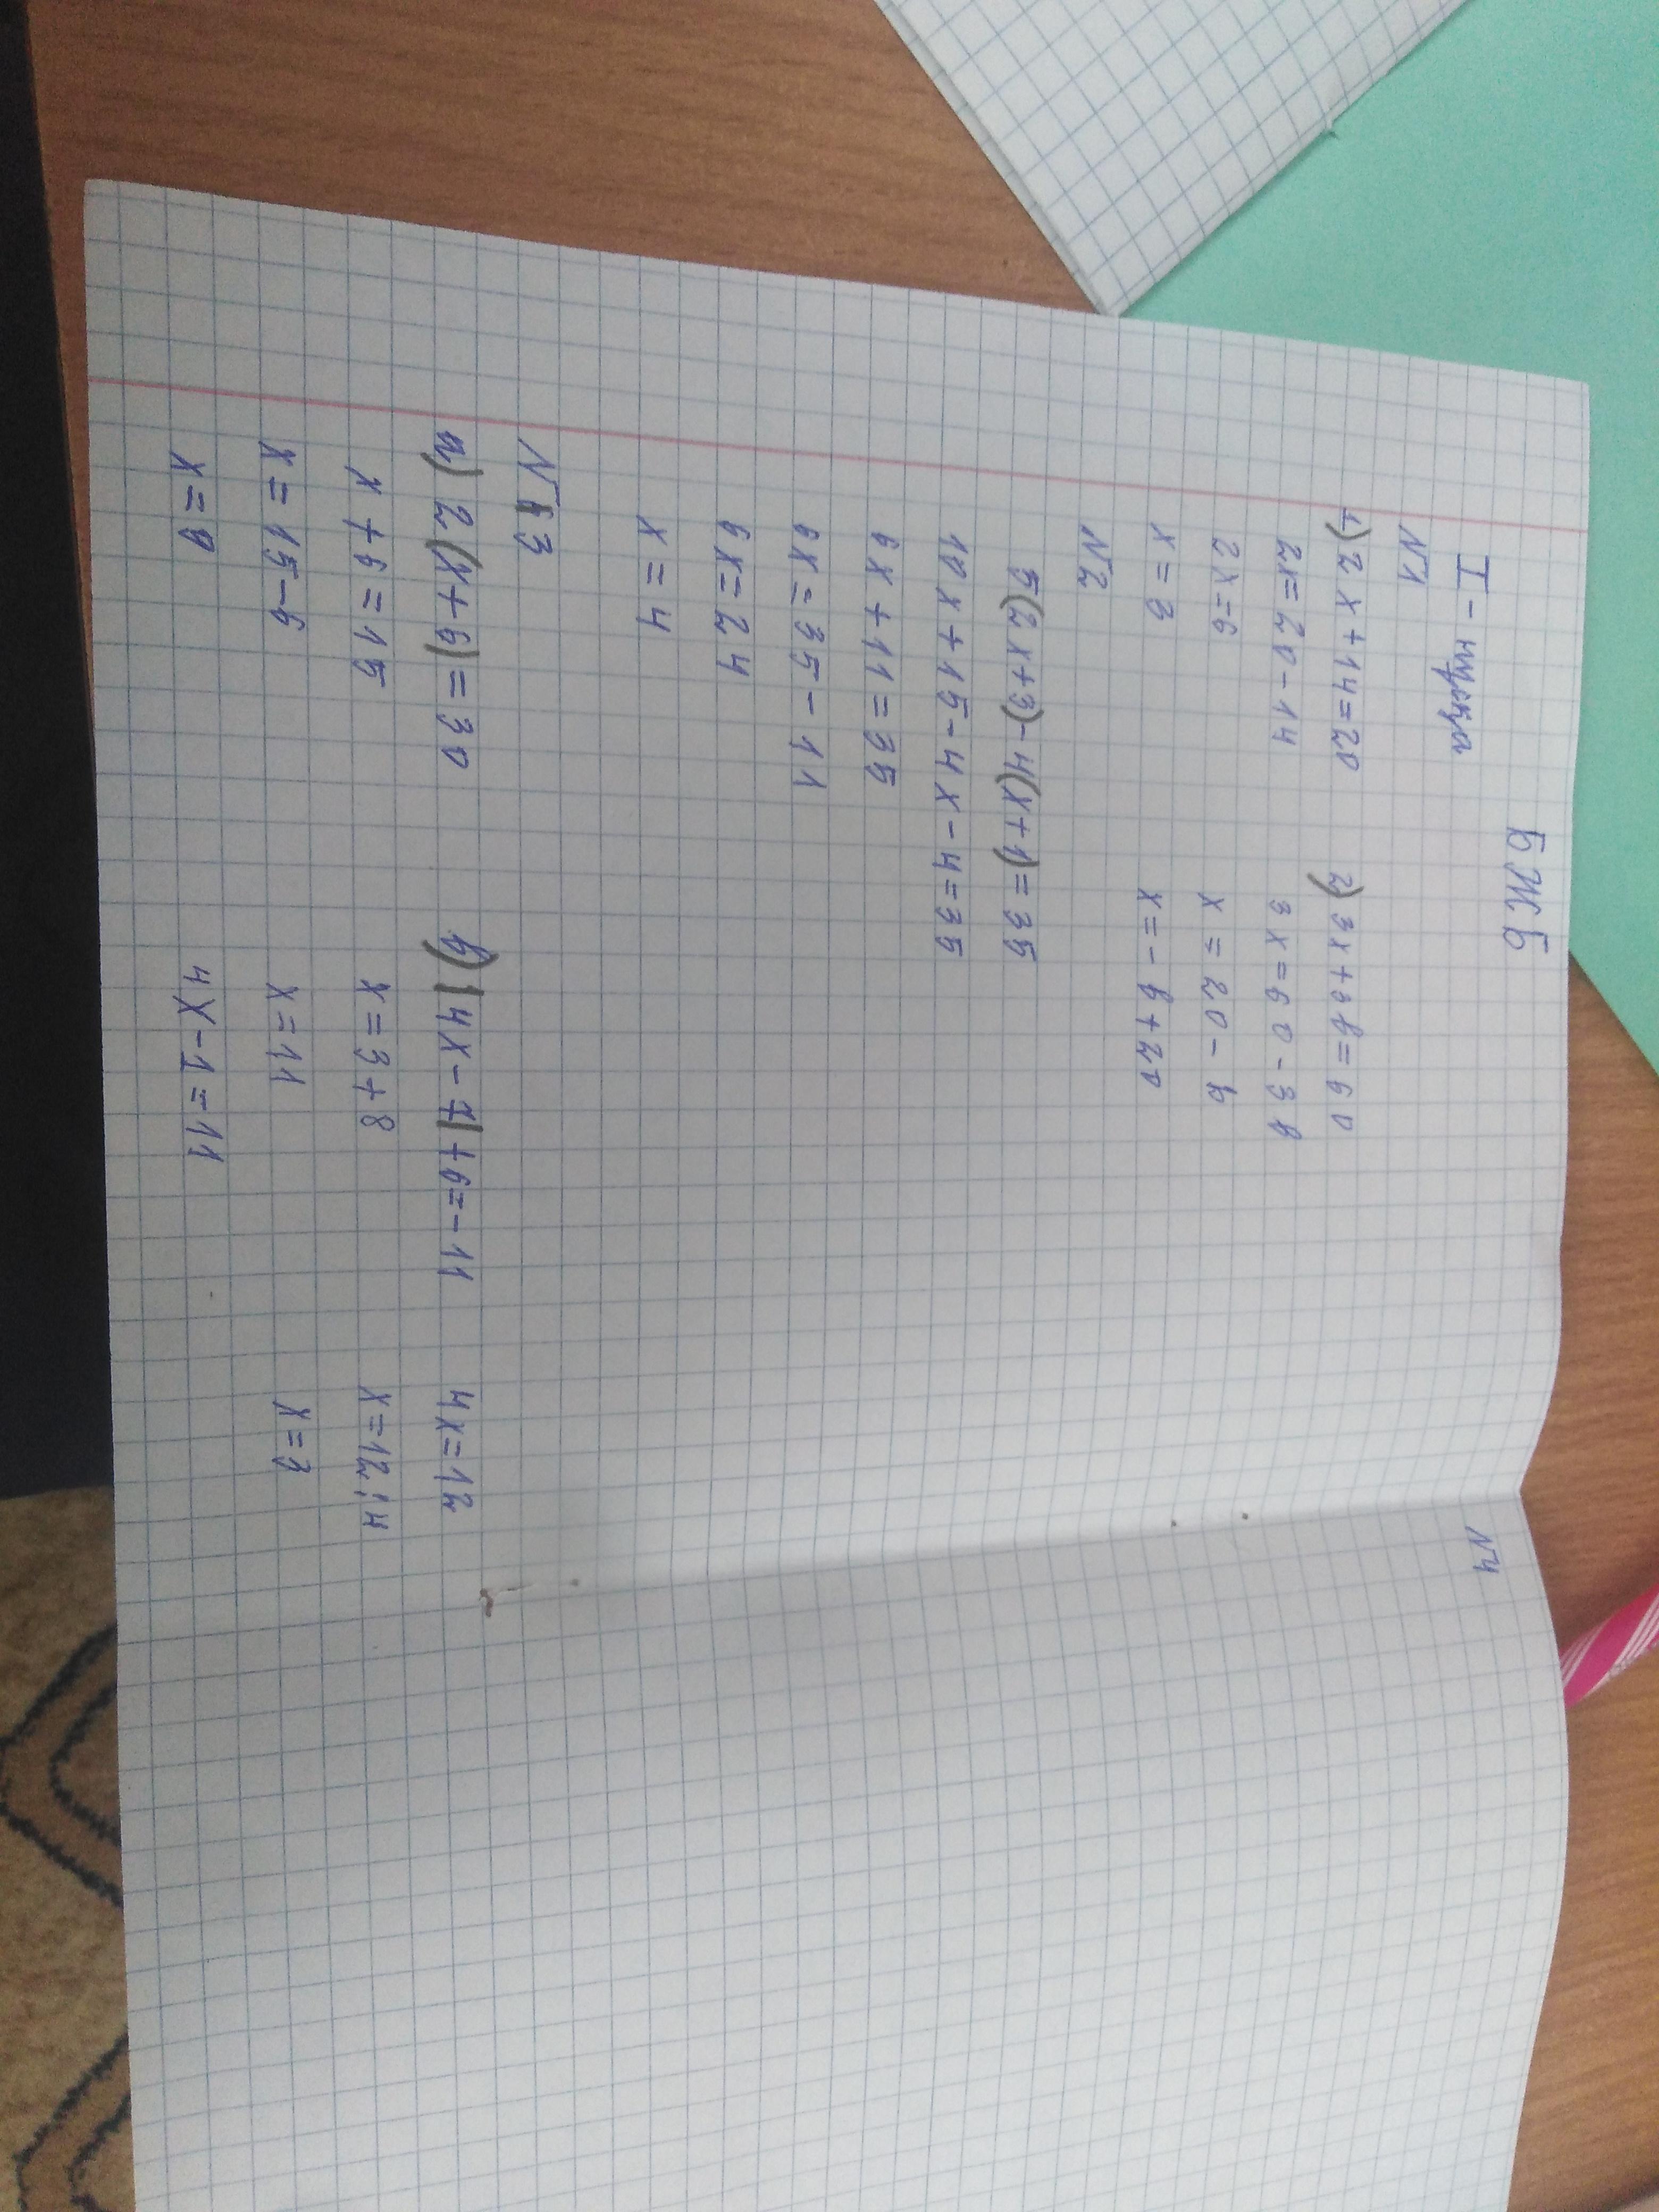 БЖБ
I - нұсқа
№1
1) 2x+14=20
2x=20-14
2x=6
x=3
2) 3x+3b=60
3x=60-3b
x=20-b
x=-b+20
№2
5(2x+3)-4(x+1)=35
10x+15-4x-4=35
6x+11=35
6x=35-11
6x=24
x=4
№3
а) 2(x+6)=30
x+6=15
x=15-6
x=9
x=3+8
x=11
4x-1=11
4x=12
x=12:4
x=3
№4